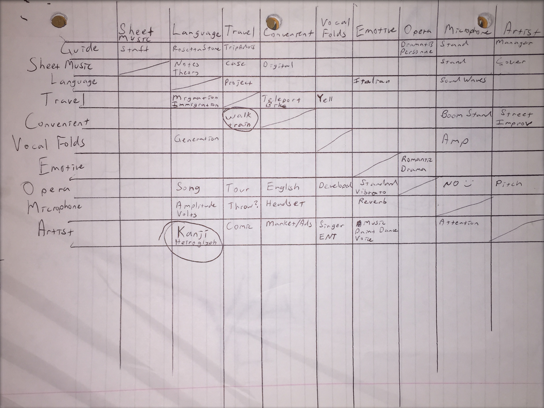 Sheet Music Language Travel Convenient Vocal Folds Emotive Opera Microphone Artist
Guide Staff Rosetta Stone TripAdvis Dramatis Personae Stand Manager
Sheet Music Notes Theory Case Digital Stand Cover
Language Project Italian Sound Waves
Travel Migration Immigration Teleport Yell
Convenient Walk train Boom Stand Street Improv
Vocal Folds Generation Amp
Emotive Romance Drama
Opera Song Tour English Developed Standard Vibrato NO :) Pitch
Microphone Amplitude Volts Throw? Headset Reverb
Artist Kanji Comic Market/Ads Singer ENT Music Voice Attention